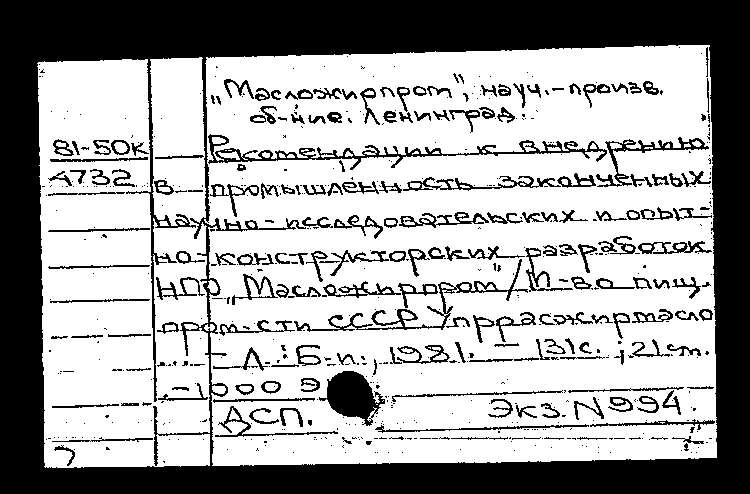 „Масложирпром", науч.-произв.
об-ние. Ленинград.
81-50к Рекомендации к внедрению
4732 в промышленность законченных
научно-исследовательских и опыт-
но-конструкторских разработок
НПО „Масложирпром"/М-во пищ.
пром-сти СССР. Упррасжирмасло
... - Л.: Б.и., 1981. - 131с.; 21см.
.-1000 э
ДСП. Экз. N994.